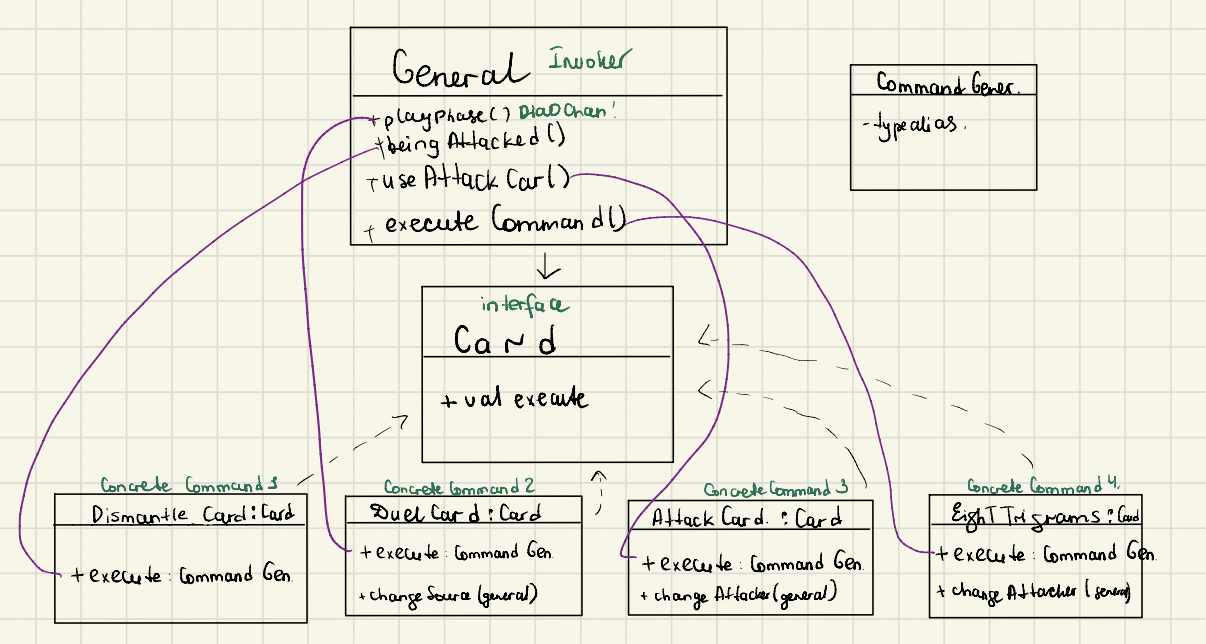 General Invoker
+ playPhase() DiaoChan!
+ being Attacked()
+ use Attack Car()
+ execute Command()
Command Gener.
- typealias.
interface
Card
+ val execute
Concrete Command 1
Dismantle Card : Card
+ execute : Command Gen.
Concrete Command 2
Duel Card : Card
+ execute : Command Gen.
+ change Source (general)
Concrete Command 3
Attack Card. : Card
+ execute : Command Gen.
+ change Attacker (general)
Concrete Command 4.
EighT Trigrams : Card
+ execute : Command Gen.
+ change Attacker (general)